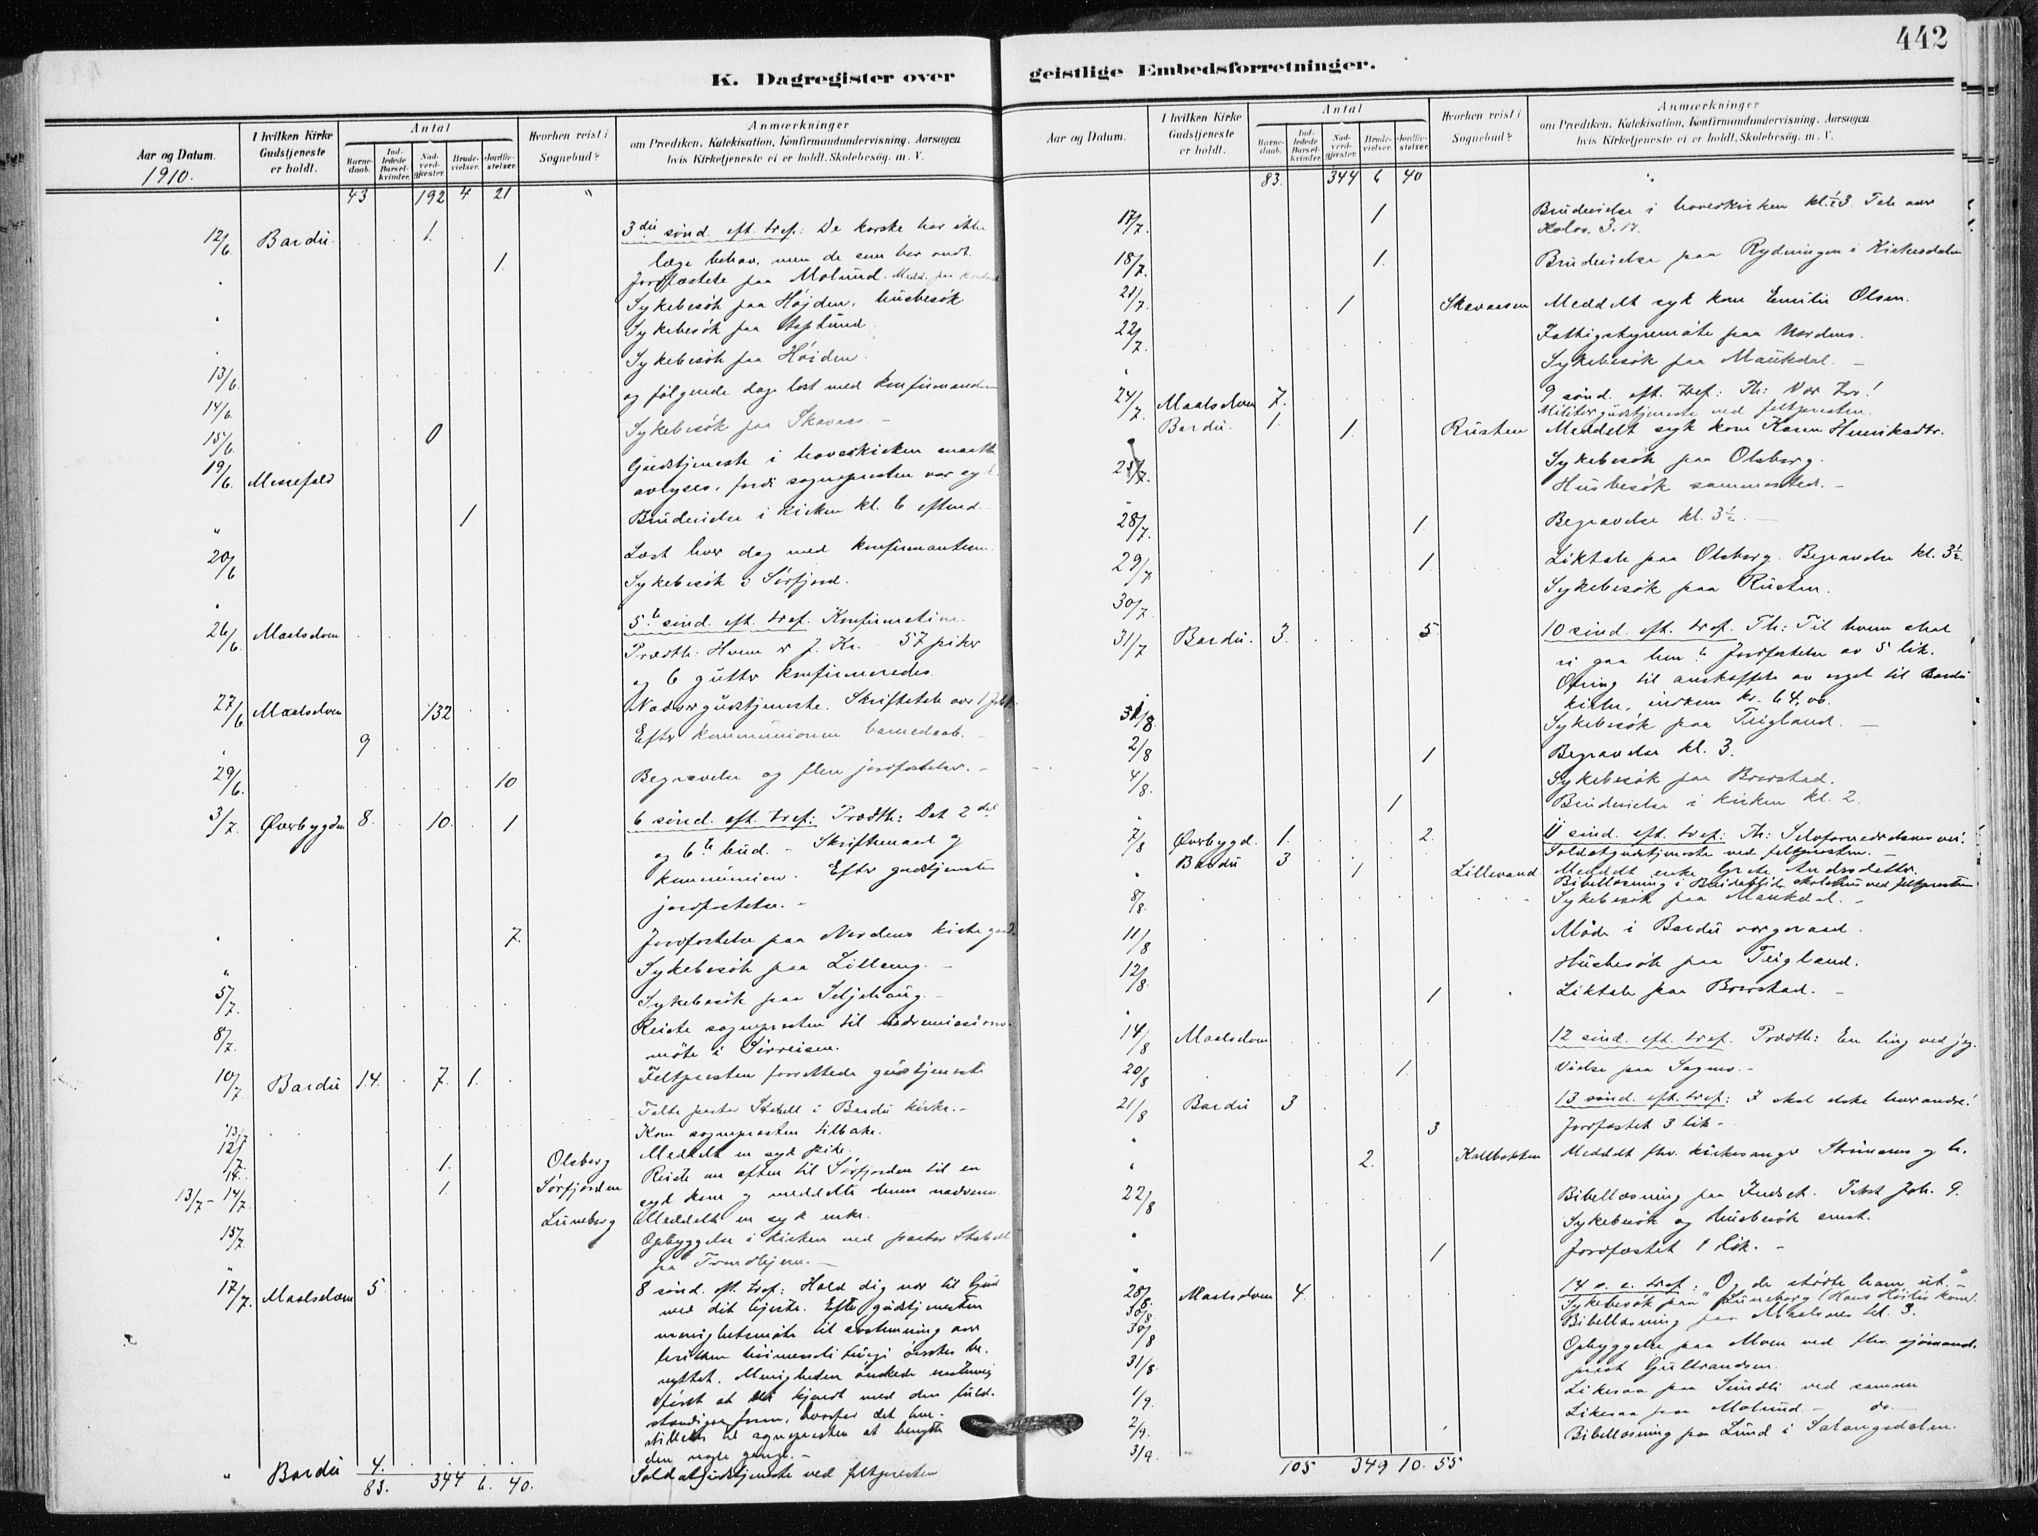 442
K. Dagregister over
geistlige Embedsforretninger.
Aar og Datum.
1910.
I hvilken Kirke
Gudstjeneste
er holdt.
Antal
Barne-
daab.
Ind-
ledede
Barsel-
kvinder.
Nad-
verd-
gjæster.
Brude-
vielser.
Jordfæ-
stelser.
Hvorhen reist i
Sognebud?
Anmærkninger
om Prædiken. Katekisation, Konfirmandundervisning. Aarsagen
hvis Kirketjeneste ei er holdt. Skolebesög. m. V.
43 192 4 21 "
12/6 Bardu. 1. 3die sönd. eft. tref: De karske har ikke
læge behov, men de som har ondt.
1. Jordfæstelse paa Molund.
Sykebesök paa Højden, husbesök
Sykebesök paa Asplund.
Sykebesök paa Höiden.
13/6. og følgende dage læst med konfirmanden
14/6. Sykebesök paa Skavaas. –
15/6. 0
19/6. Messefald Gudstjeneste i hovedkirken maatte
avlyses, fordi sognepresten var syk.
" 1 Brudevielse i kirken kl. 6 efterm.
20/6 Læst hver dag med konfirmanterne.
Sykebesök i Sörfjord.
26/6. Maalselven 5te sönd. eft. tref. Konfirmation.
Prædth: Hvem er J. Kr. – 57 piker
og 6 gutter konfirmeredes
27/6 Maalselven 132 Nadvergudstjeneste. Skriftetale over 1 Joh 1.
9 Efter kommunionen barnedaab. –
29/6. 10 Begravelse og flere jordfæstelser. –
3/7. Øverbygden 8. 10. 1 6 sönd. eft. tref: Prædth: Det 2det
og 6te bud. – Skriftemaal og
kommunion. Efter gudstjenesten
jordfæstelse. –
7. Jordfæstelse paa Nordmo kirkegaard.
" Sykebesök paa Lilleeng. –
5/7. Sykebesök paa Seljehaug. –
8/7. Reiste sognepresten til indremissions-
möte i Sörreisen.
10/7. Bardu 14. 7. 1. Feltpresten forrettede gudstjeneste
Talte pastor Stabell i Bardu kirke. –
13/7 Kom sognepresten tilbake.
12/7. 1. Olsborg Meddelt en syk pike.
13/7 – 14/7. 1. Sörfjorden Reiste om aften til Sörfjorden til en
syk kone og meddelte denne nadveren
Luneborg Meddelt en syk enke.
15/7. Opbyggelse i kirken ved pastor Stabell
fra Trondhjem. –
17/7. Maalselven 5 8 sönd. eft. tref: Hold dig nær til Gud
med dit hjerte. Efter gudstjenesten
menighetsmöte til avstemning over
hvilken liturgi önskes be-
nyttet. Menigheden önskede
först at bli kjendt med den fuld-
stændige form, hvorfor det hen-
stilles til sognepresten at benytte
den nogle gange. –
" Bardu 4. Soldatgudstjeneste ved feltpresten
83. 344 6. 40.
Aar og Datum.
I hvilken Kirke
Gudstjeneste
er holdt.
Antal
Barne-
daab.
Ind-
ledede
Barsel-
kvinder.
Nad-
verd-
gjæster.
Brude-
vielser.
Jordfæ-
stelser.
Hvorhen reist i
Sognebud?
Anmærkninger
om Prædiken. Katekisation, Konfirmandundervisning. Aarsagen
hvis Kirketjeneste ei er holdt. Skolebesög. m. V.
83. 344 6 40
17/7. 1 Brudevielse i hovedkirken kl. Tale over
Kolos. 3. 17.
18/7. 1. Brudevielse paa Rydningen i Kirkesdalen
21/7. 1 Skavaasen Meddelt syk kone Emilie Olsen.
22/7. Fattigstyremöte paa Nordmo.
Sykebesök paa Maukdal. –
24/7. Maalselven 7. 9 sönd. eft. tref: Th: Vor tro!
Militærgudstjeneste ved feltpresten.
Bardu. 1. 1. Rusten Meddelt syk kone Karen Henriksdtr.
25/7. Sykebesök paa Olsborg.
Husbesök sammested. –
28/7. 1 Begravelse kl. 3½. –
29/7 1 Liktale paa Olsborg. Begravelse kl. 3½
30/7. Sykebesök paa Rusten.
31/7 Bardu. 3. 5 10 sönd. eft. tref. Th: Til hvem skal
vi gaa hen? Jordfæstelse av 5 lik.
Ofring til anskaffelse av orgel til Bardu
kirke, indkom kr. 64,00.
Sykebesök paa Teigland. –
2/8 1 Begravelse kl. 3.
4/8. Sykebesök paa Brerstad.
1 Brudevielse i kirken kl. 2.
7/8 Øverbygd. 1. 2. 11 sönd. eft. tref: Th: Selvfornedrelsens vei!
Bardu 3 Soldatgudstjeneste ved feltpresten. –
1 Lillevand. Meddelt enke Grete Andersdatter.
Bibellæsning i skolehus ved feltpresten
8/8. Sykebesök paa Maukdal. –
11/8 Möde i Bardu vergeraad.
12/8. Husbesök paa Teigland.
1 Liktale paa Brerstad. –
14/8 Maalselven 12 sönd. eft. tref. Prædth: En ting ved jeg.
20/8 1. Vielse paa Sagmo. –
21/8 Bardu 3 13 sönd. eft. tref: I skal elske hverandre!
" 3 Jordfæstet 3 lik –
" 2. Kalbakken Meddelt fhv. kirkesanger Strömsmo og h.
22/8 Bibellæsning paa Indset. Tekst Joh. 9.
Sykebesök og husbesök smst.
1 Jordfæstet 1 lik. –
28/8. Maalselven 4. 14 s. e. tref: Og de stötte ham ut. –
30/8. Sykebesök paa Luneborg
30/8 Bibellæsning paa Maalsnes kl. 3.
31/8. Opbyggelse paa Moen ved fhv. sjömands-
prest Gulbrandsen.
1/9. Likesaa paa Sundli ved samme
2/9. Likesaa paa Molund. – do –
3/9. Bibellæsning paa Lund i Salangsdalen.
105 349 10. 55